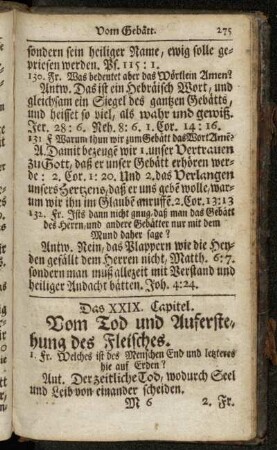 Vom Gebätt. 275
sondern sein heiliger Name, ewig solle ge-
priesen werden. Ps. 115: 1.
130. Fr. Was bedeutet aber das Wörtlein Amen?
Antw. Das ist ein Hebräisch Wort, und
gleichsam ein Siegel des gantzen Gebätts,
und heisset so viel, als wahr und gewiß.
Jer. 28: 6. Neh. 8: 6. 1. Cor. 14: 16.
131. F Warum thun wir zum Gebätt das Wort Amē?
A. Damit bezeuge wir 1. unser Vertrauen
zu Gott, daß er unser Gebätt erhören wer-
de: 2, Cor. 1: 20. Und 2. das Verlangen
unsers Hertzens, daß er uns gebē wolle, war-
um wir ihn im Glaubē anruffē. 2. Cor. 13: 13
132. Fr. Ists dann nicht gnug, daß man das Gebätt
des Herrn, und andere Gebätter nur mit dem
Mund daher sage?
Antw. Nein, das Plappern wie die Hey-
den gefällt dem Herren nicht, Matth. 6: 7.
sondern man muß allezeit mit Verstand und
heiliger Andacht bätten. Joh. 4: 24.
Das XXIX. Capitel.
Vom Tod und Auferste-
hung des Fleisches.
1. Fr. Welches ist des Menschen End und letzteres
hie auf Erden?
Ant. Der zeitliche Tod, wodurch Seel
und Leib von einander scheiden.
M 6 2. Fr.